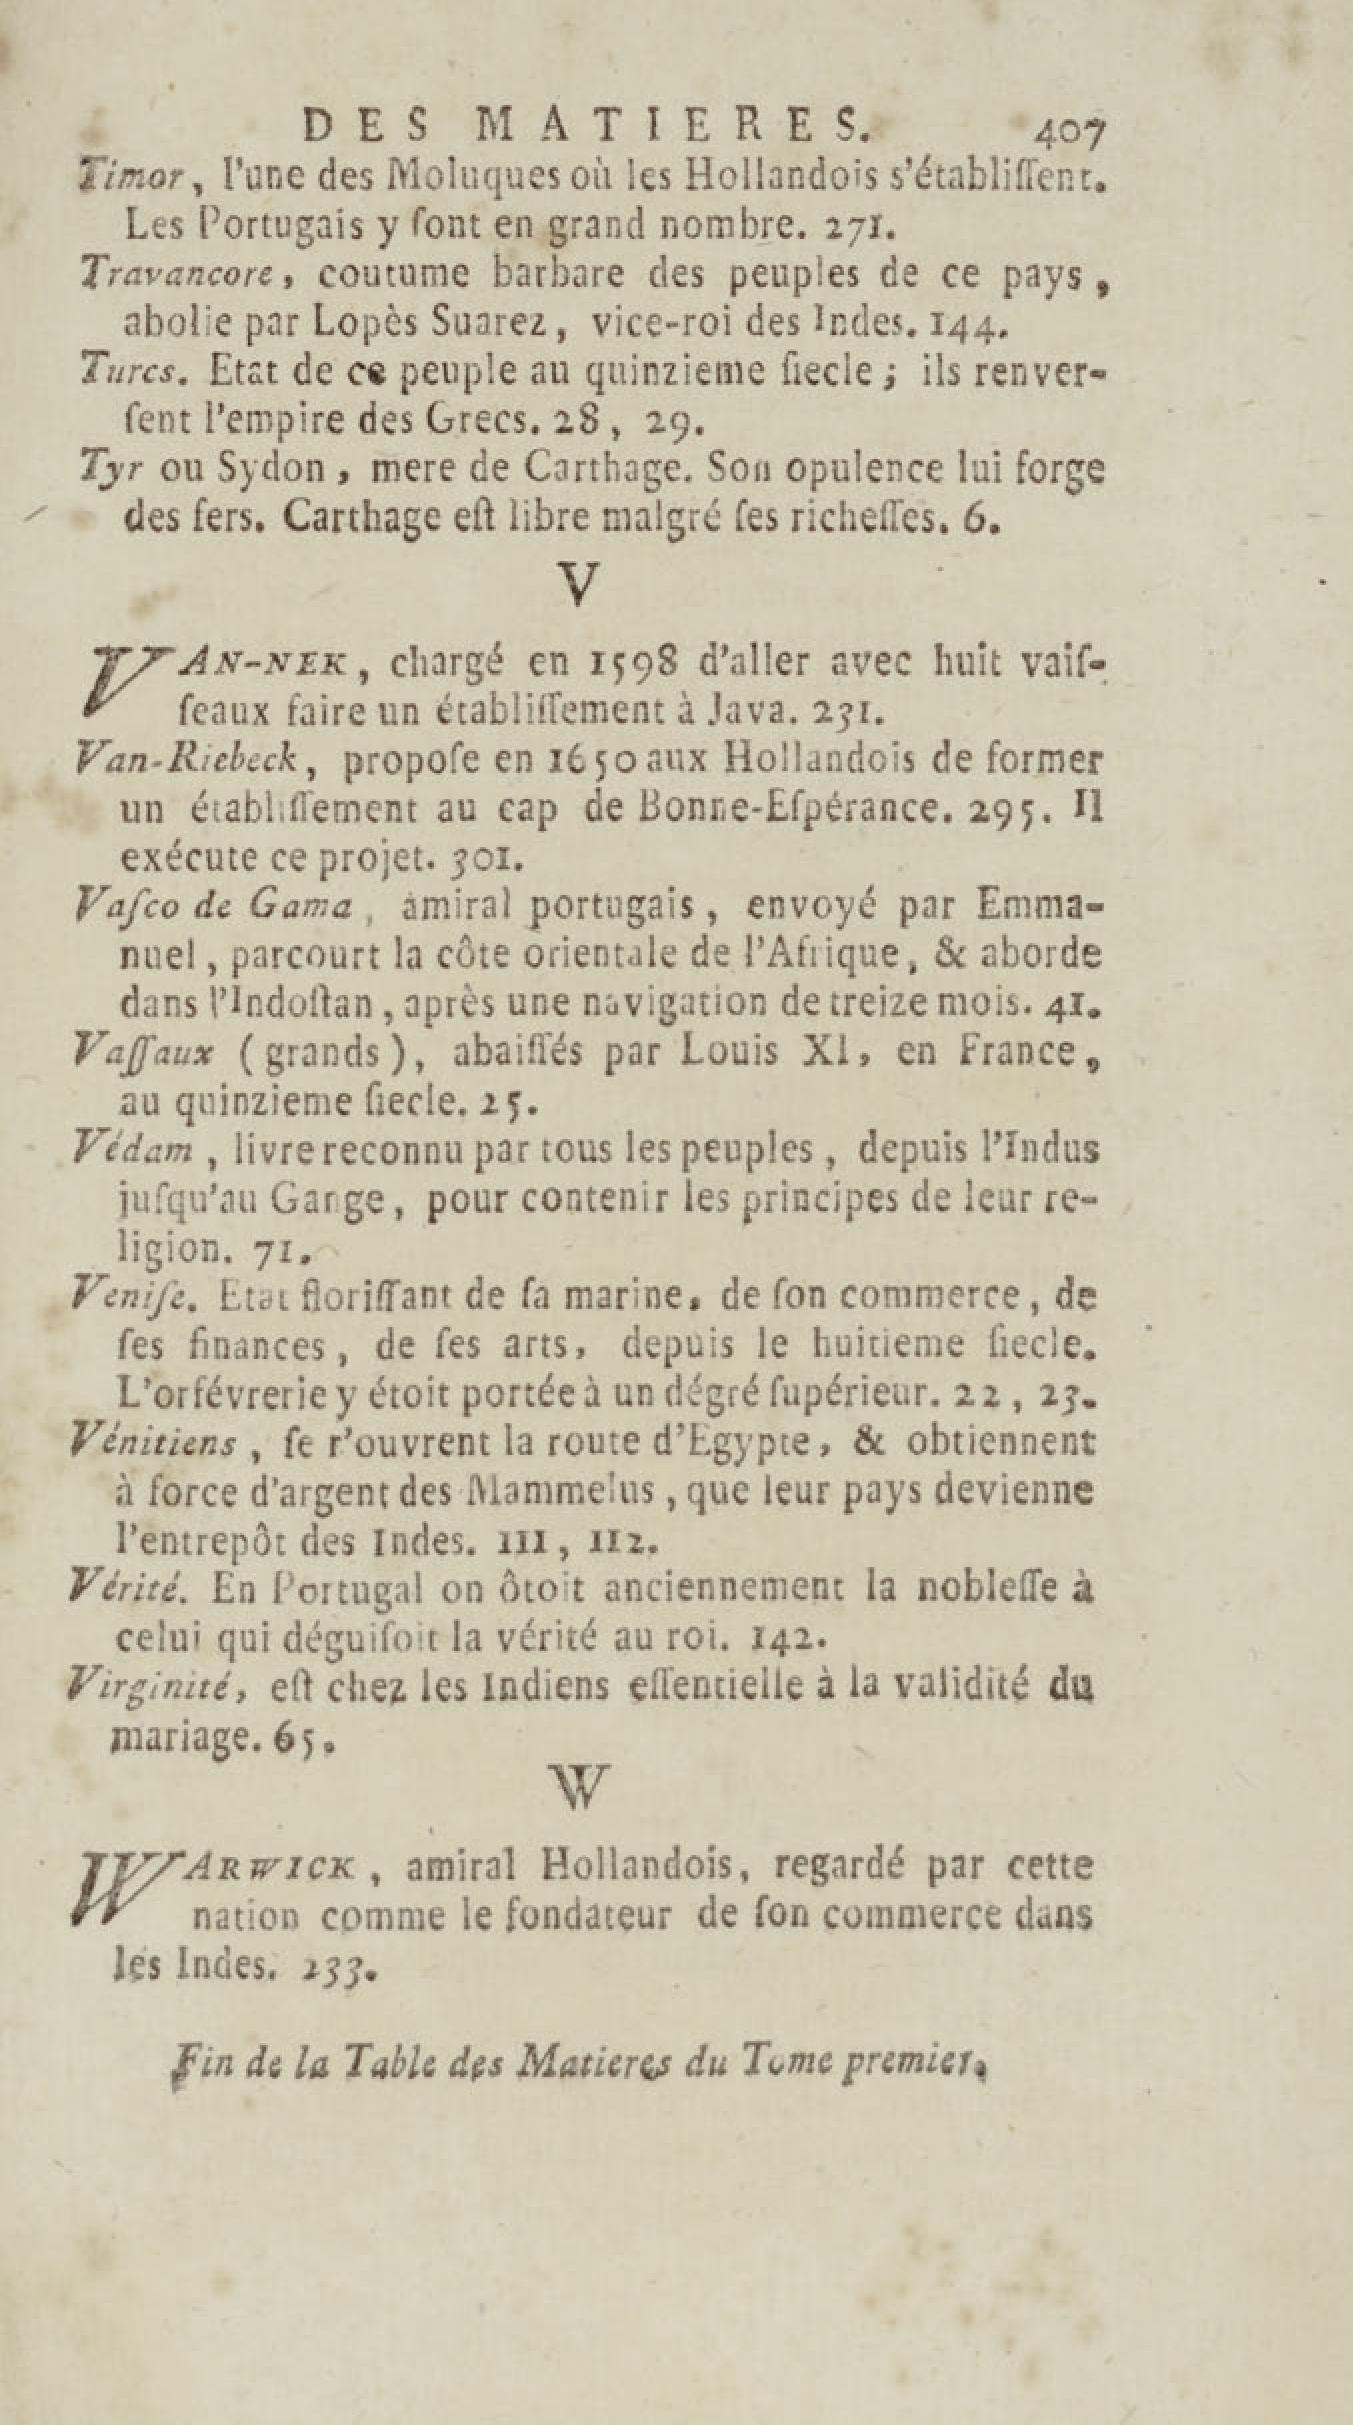 DES MATIERES. 407
Timor, l'une des Moluques où les Hollandois s'établiſſent.
Les Portugais y ſont en grand nombre. 271.
Travancore, coutume barbare des peuples de ce pays,
abolie par Lopès Suarez, vice-roi des Indes. 144.
Turcs. Etat de ce peuple au quinzieme ſiecle; ils renver-
ſent l'empire des Grecs. 28, 29.
Tyr ou Sydon, mere de Carthage. Son opulence lui forge
des fers. Carthage eſt libre malgré ſes richeſſes. 6.
V
VAN-NEK, chargé en 1598 d'aller avec huit vaiſ-
ſeaux faire un établiſſement à Java. 231.
Van-Riebeck, propoſe en 1650 aux Hollandois de former
un établiſſement au cap de Bonne-Eſpérance. 295. Il
exécute ce projet. 301.
Vaſco de Gama, amiral portugais, envoyé par Emma-
nuel, parcourt la côte orientale de l'Afrique, & aborde
dans l'Indoſtan, après une navigation de treize mois. 41.
Vaſſaux (grands), abaiſſés par Louis XI, en France,
au quinzieme ſiecle. 25.
Védam, livre reconnu par tous les peuples, depuis l'Indus
juſqu'au Gange, pour contenir les principes de leur re-
ligion. 71.
Veniſe. Etat floriſſant de ſa marine, de ſon commerce, de
ſes finances, de ſes arts, depuis le huitieme ſiecle.
L'orfévrerie y étoit portée à un dégré ſupérieur. 22, 23.
Vénitiens, ſe r'ouvrent la route d'Egypte, & obtiennent
à force d'argent des Mammelus, que leur pays devienne
l'entrepôt des Indes. 111, 112.
Vérité. En Portugal on ôtoit anciennement la nobleſſe à
celui qui déguiſoit la vérité au roi. 142.
Virginité, eſt chez les Indiens eſſentielle à la validité du
mariage. 65.
W
WARWICK, amiral Hollandois, regardé par cette
nation comme le fondateur de ſon commerce dans
les Indes. 233.
Fin de la Table des Matieres du Tome premier.